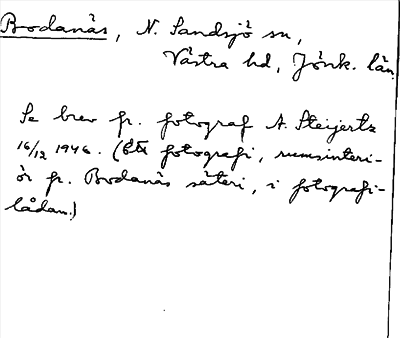 Bodanäs, N. Sandsjö sn,
Västra hd, Jönk. län.
Se brev fr. fotograf A. Steijertz
16/12 1946. (Ett fotografi, rumsinteri-
ör fr. Bodanäs säteri, i fotografi-
lådan.)